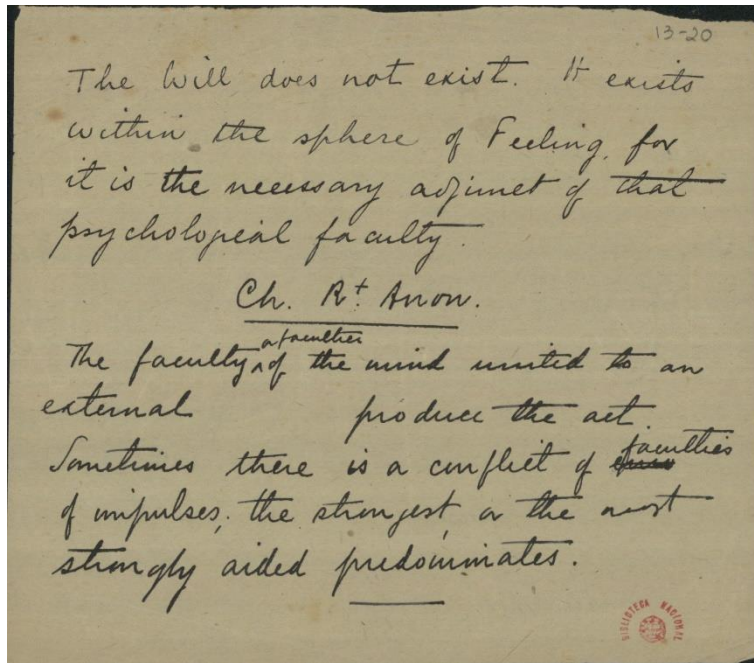 13-20
The Will does not exist. It exists
within the sphere of Feeling, for
it is the necessary adjunct of that
psychological faculty.
Ch. Rt. Anon.
or faculties
The faculty of the mind united to an
external produce the act.
Sometimes there is a conflict of faculties
of impulses; the strongest, or the most
strongly aided predominates.
BIBLIOTECA NACIONAL